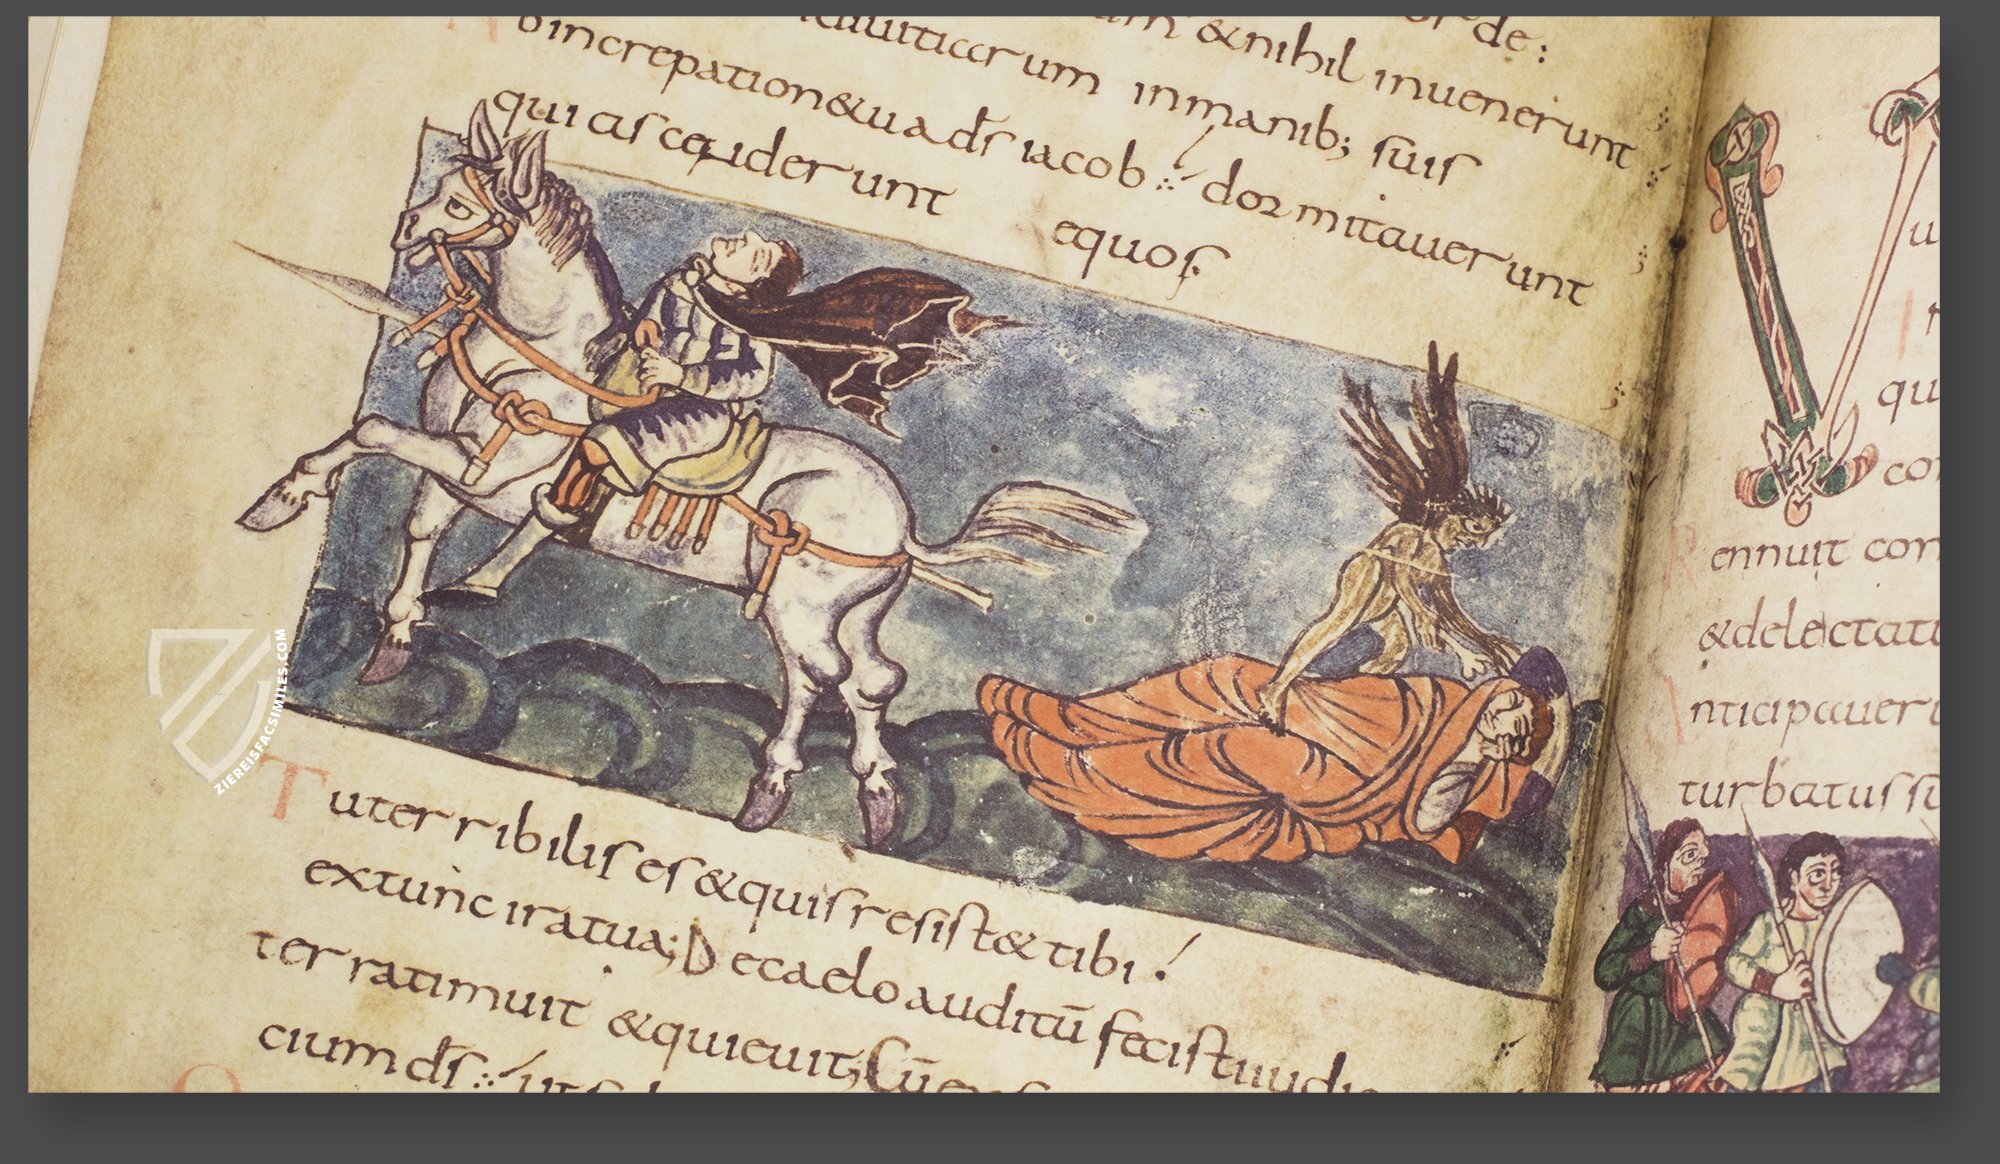 & nihil inuenerunt
inmanib; suis
bincrepation&ua ds iacob dormitauerunt
qui asceṇderunt equos
Tuterribilis es & quis resist& tibi
extunc ira tua; De caelo auditū fecisti
terra timuit & quieuit; Cū
cium ds
u
qu
co
Rennuit con
& delectati
Anticipauer
turbatus su
ZIEREISFACSIMILES.COM